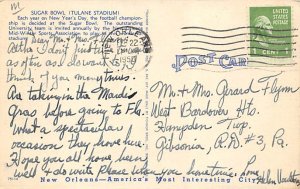 SUGAR BOWL (TULANE STADIUM)
Each year on New Year's Day, the football champion-
ship is decided at the Sugar Bowl. The outstanding
University team is invited annually by the
Mid-Winter Sports Association to play
Dear Mr. & Mrs.
I don't just write
as often as I should I
think of you many times.
As taking in the Mardis
Gras before going to Fla.
What a spectacular
occasion they have here
Hope you all have been
well & do write Please when you have time. Love
NEW ORLEANS
FEB 22
1950
1 CENT 1
POST CARD
Mr. & Mrs. Girard Flynn
West Bardover Hts.
Hampden Twp.
Gibsonia, R.D. #3, Pa.
New Orleans—America's Most Interesting City